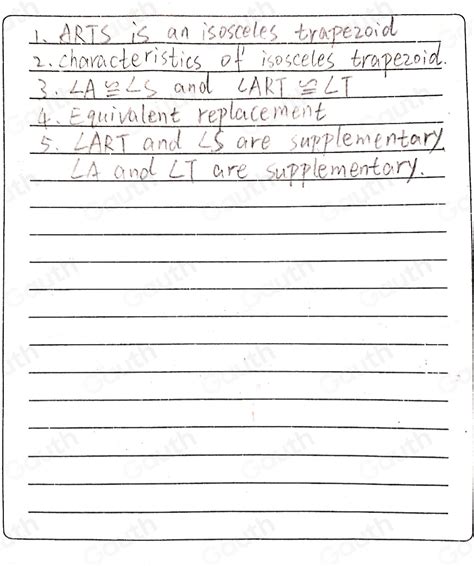 1. ARTS is an isosceles trapezoid
2. characteristics of isosceles trapezoid.
3. ∠A ≅ ∠S and ∠ART ≅ ∠T
4. Equivalent replacement
5. ∠ART and ∠S are supplementary
∠A and ∠T are supplementary.